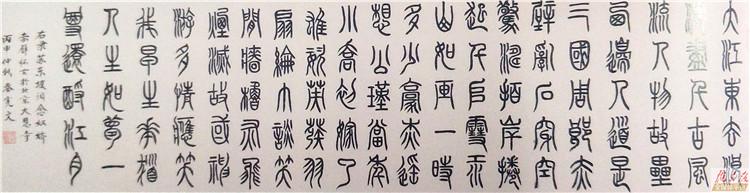 大江東去浪
淘盡千古風
流人物故壘
西邊人道是
三國周郎赤
壁亂石穿空
驚濤拍岸捲
起千堆雪江
山如畫一時
多少豪傑遥
想公瑾當年
小喬初嫁了
雄姿英發羽
扇綸巾談笑
間檣櫓灰飛
煙滅故國神
遊多情應笑
我早生華髮
人生如夢一
尊還酹江月
右录苏東坡詞念奴嬌
赤壁怀古於北京大恩寺
丙申仲秋